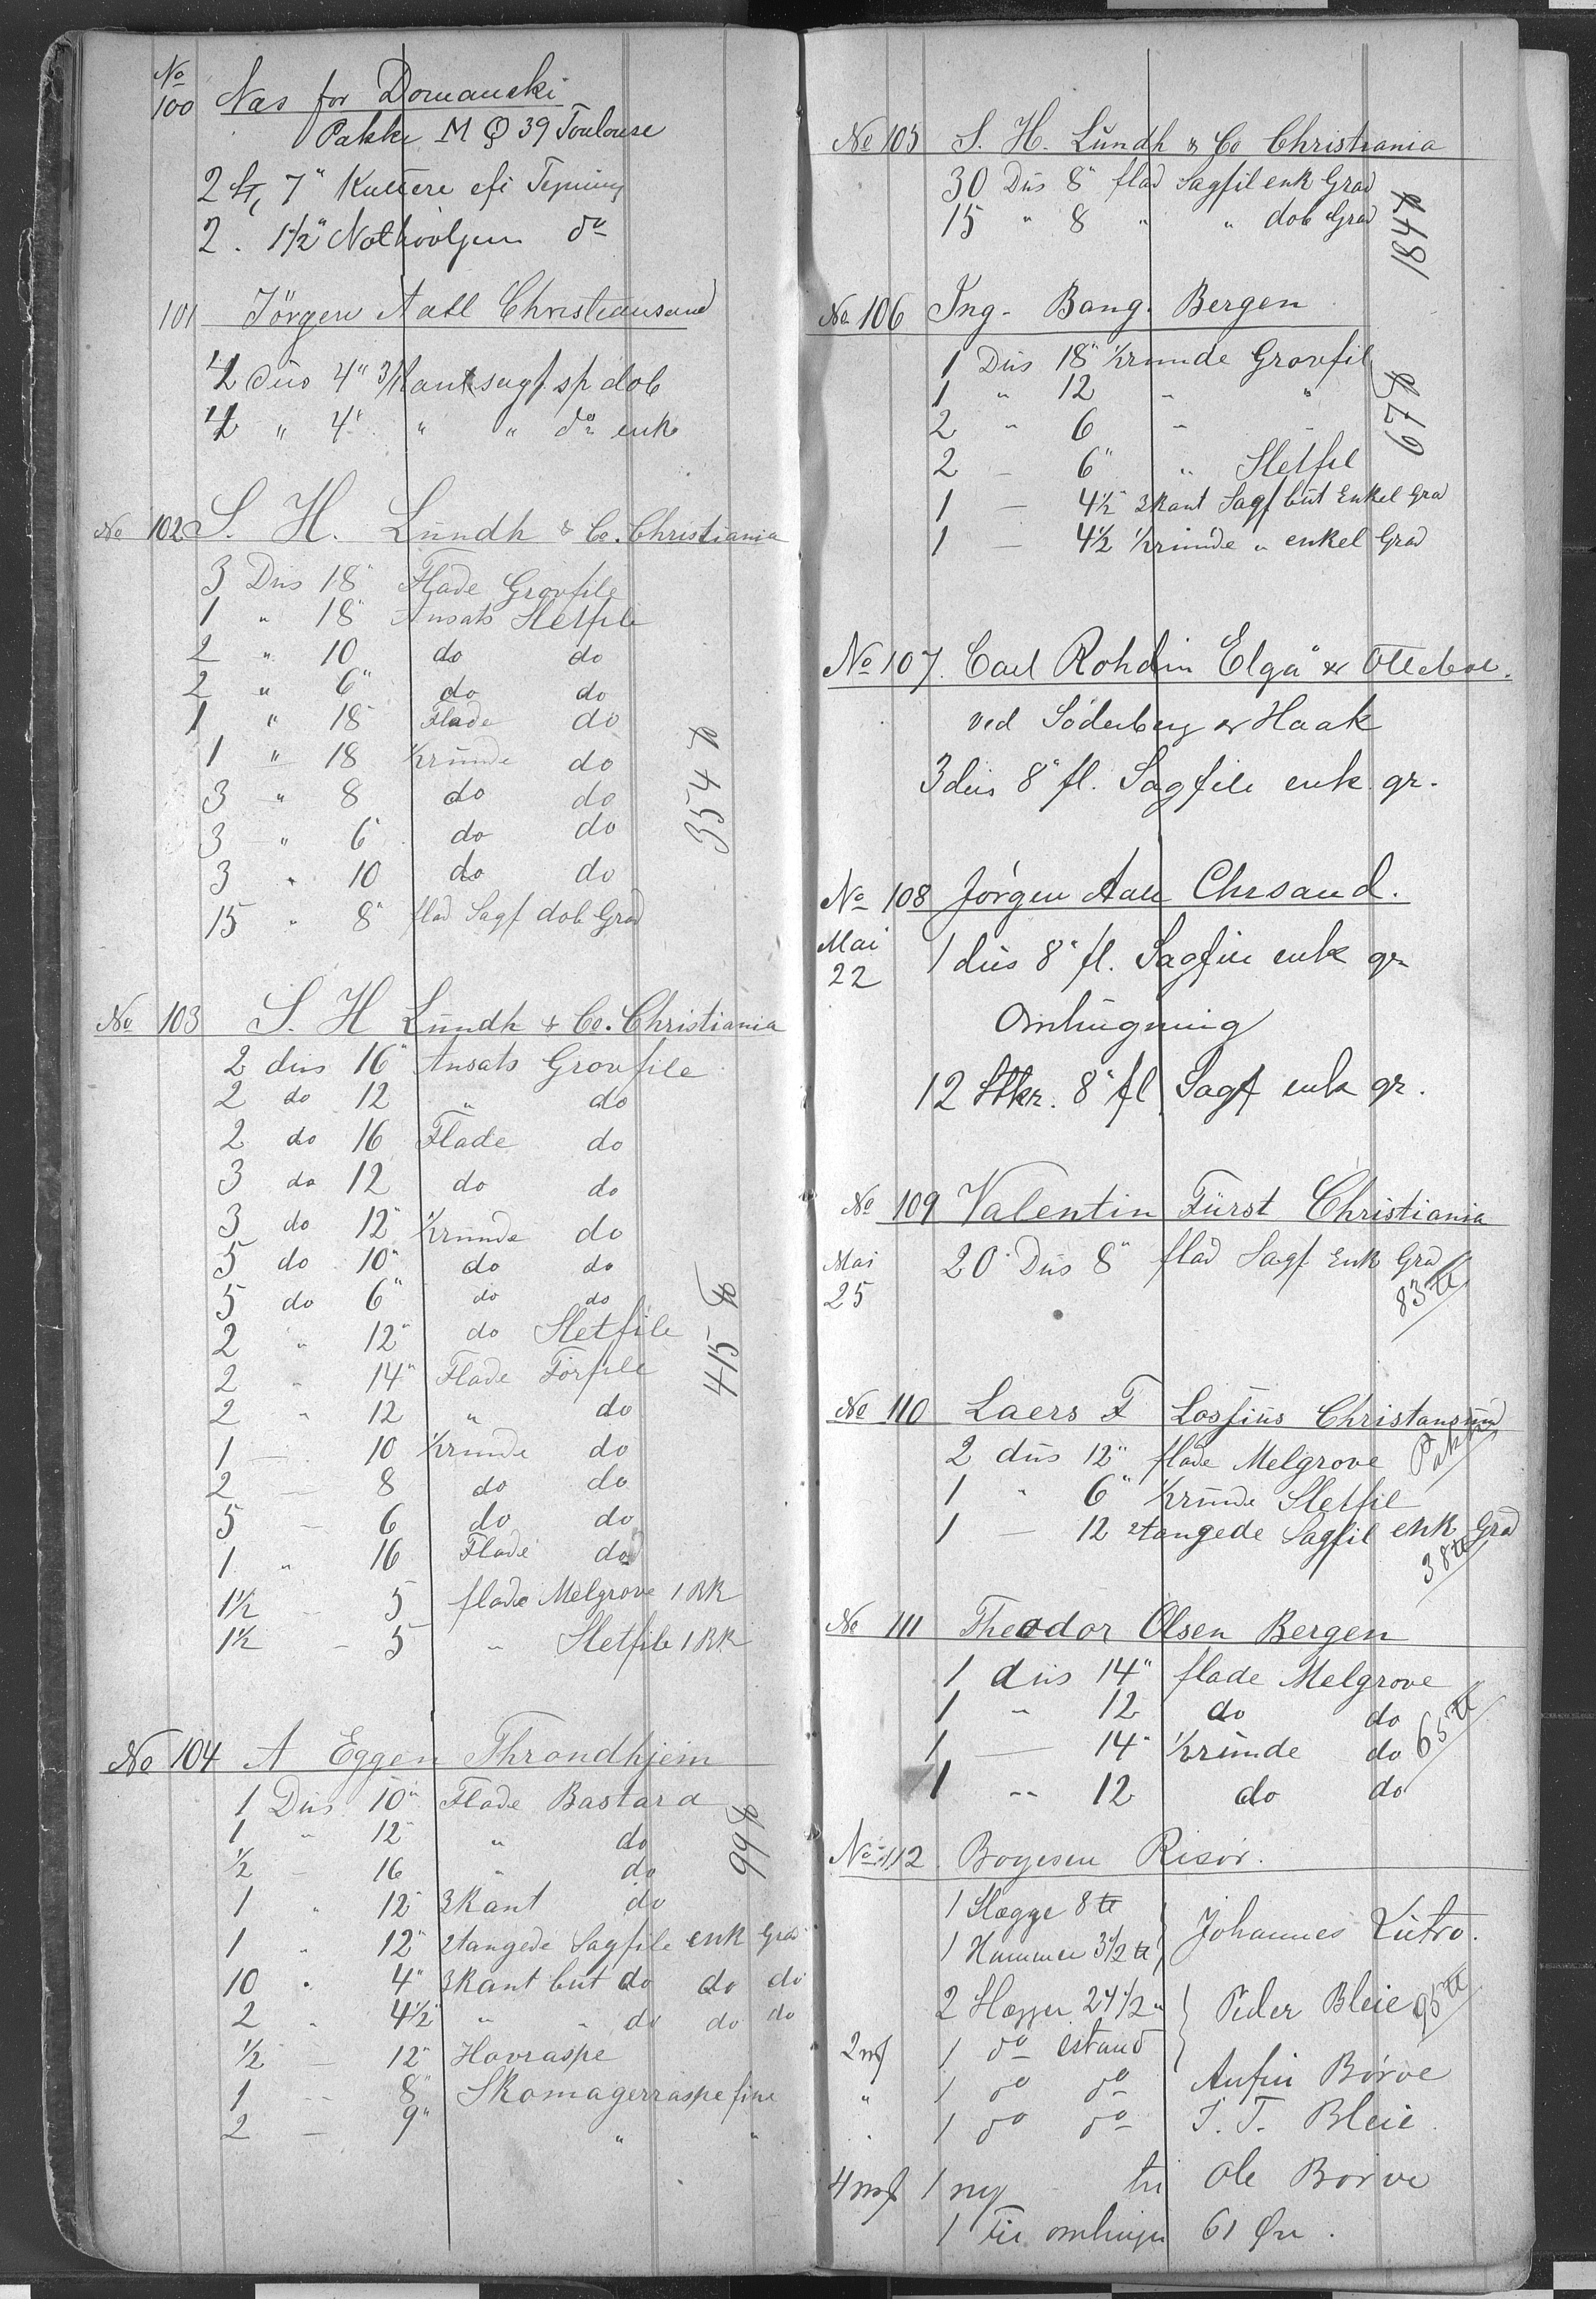 No
100 Næs for Domanski
Pakke M Q 39 Toulouse
2 St, 7" Kuttere efi Tegning
2 . 1½" Nothövljern do
101 Jörgen Aall Christiansand
½ Dus 4" 3/Kant sagf. sp dob
½ " 4" " " do enk
No 102 S. H. Lundh & Co. Christiania
3 Dus 18" Flade Grovfile
1 " 18" Ansats Sletfile
2 " 10 do do
2 " 6" do do
1 " 18" Flade do
1 " 18 ½runde do
3 " 8 do do
3 " 6 do do
3 " 10 do do
15 " 8" flad Sagf dob Grad
354 ℔
No 103 S. H Lundh & Co. Christiania
2 dus 16" Ansats Grovfile
2 do 12 " do
2 do 16 Flade do
3 do 12 do do
3 do 12" ½runde do
5 do 10" do do
5 do 6" do do
2 " 12" do Sletfile
2 " 14" Flade Forfile
2 " 12 " do
1 — 10 ½runde do
2 — 8 do do
5 — 6 do do
1 " 16 Flade do
1½ — 5 flade Melgrove 1 RK
1½ — 5 " Sletfile 1 RK
415 ℔
No 104 A Eggen Throndhjem
1 Dus 10" Flade Bastard
1 " 12" " do
½ — 16 " do
1 " 12" 3Kant do
1 " 12" 2tangede Sagfile enk Grad
10 " 4" 3Kant but do do do
2 " 4½" " " do do do
½ — 12" Hovraspe
1 — 8" Skomagerraspe fine
2 — 9" " "
99 ℔
No 105 S. H. Lundh & Co Christiania
30 Dus 8" flad Sagfil enk Grad
15 " 8 " " dob Grad
184 ℔
No 106 Ing. Bang. Bergen
1 Dus 18" ½runde Grovfil
1 " 12 " "
2 " 6 "
2 — 6" " Sletfil
1 — 4½" 3Kant Sagf but Enkel Grad
1 — 4½ ½runde " enkel Grad
67 ℔
No 107. Carl Rohdin Elgå & Ottebol.
ved Söderberg & Haak
3 dus 8" fl. Sagfile enk. gr.
No 108 Jørgen Aall Chrsand.
Mai 22 1 dus 8" fl. Sagfile enk gr
Omhugning
12 Stkr. 8" fl Sagf enk gr.
No 109 Valentin Fürst Christiania
Mai 25 20 Dus 8" flad Sagf Enk Grad
83 ℔
No 110 Laers F Lossius Christansund
Pakke
2 dus 12" flade Melgrove
1 " 6" ½runde Sletfil
1 — 12 2tangede Sagfil enk Grad
38 ℔
No 111 Theodor Olsen Bergen
1 dus 14" flade Melgrove
1 " 12 do do
1 — 14" ½runde do
1 " 12 do do
65 ℔
No 112 Boyesen Risör.
1 Slægge 8 ℔
1 Hammer 3½ ℔ } Johannes Lutro.
2 Slægger 24½ " } Peder Bleie 95 ℔
2 mf 1 do istand
" 1 do do Anfin Børve
. 1 do do I. T. Bleie
4 mf 1 ny til Ole Børve
1 Fil omhugn 61 Øre.